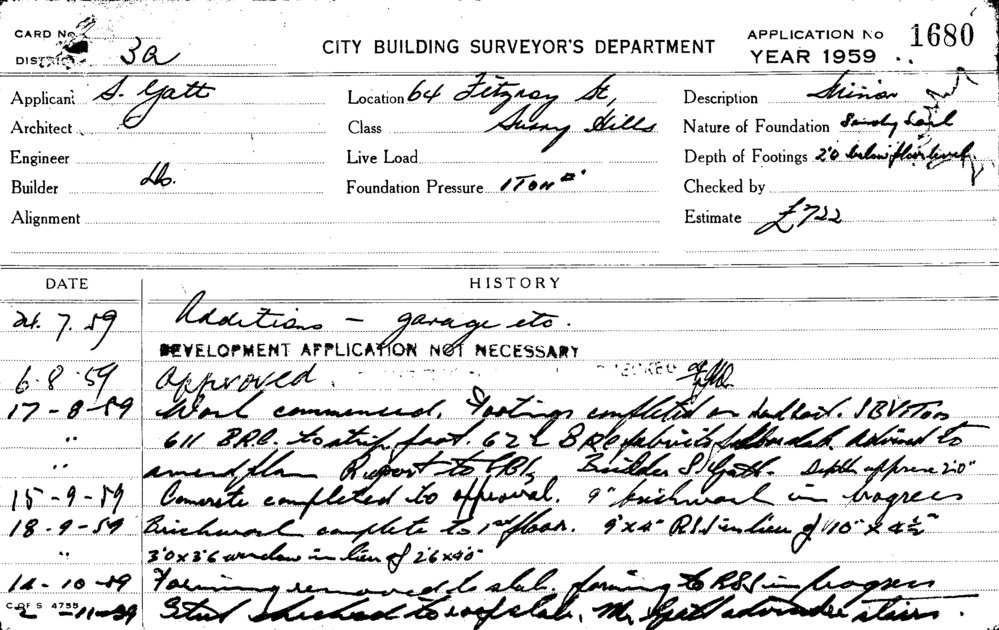 CARD No
DISTRICT 3a
CITY BUILDING SURVEYOR'S DEPARTMENT
APPLICATION No 1680
YEAR 1959
Applicant S. Gatt
Location 64 Fitzroy St,
Description Minor
Architect
Class Surry Hills
Nature of Foundation Sandy Soil
Engineer
Live Load
Depth of Footings 2'0 below floor level
Builder Do.
Foundation Pressure 1 TON
Checked by
Alignment
Estimate £722
DATE HISTORY
21.7.59 Additions - garage etc.
DEVELOPMENT APPLICATION NOT NECESSARY
6.8.59 Approved.
17-8-59 Work commenced. Footings completed on
" 611 BRC. to strip foot. 622 BRC advised to
" amend plan Report to Builder S. Gatt. Depth approx 2'0"
15-9-59 Concrete completed to approval. 9" brickwork in progress
18-9-59 Brickwork complete to 1st floor. 9"x4" RSJ in lieu of 10" x 4½"
" 3'0x3'6 window in lieu of 2'6x4'0"
14-10-59 Forming removed to slab. forming to RSJ in progress
C.OF S 4755
2-11-59 Steel checked to roof slab. Mr Gatt stairs.